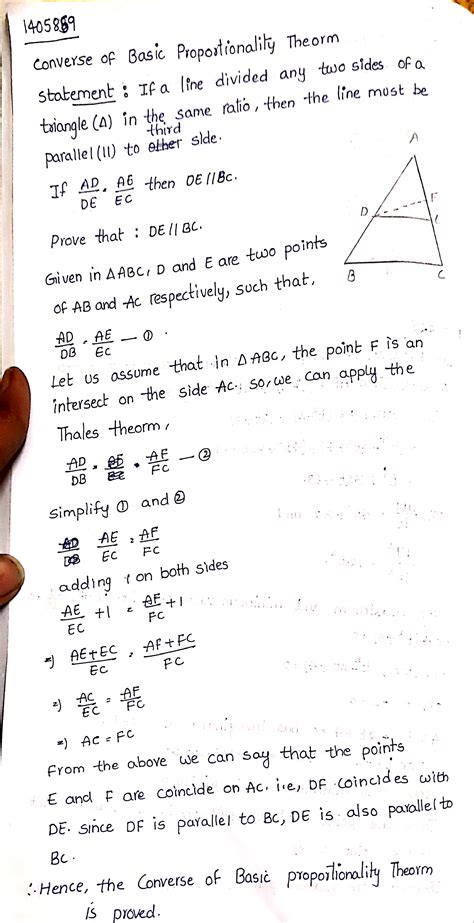 1405869
Converse of Basic Proportionality Theorm
Statement : If a line divided any two sides of a
triangle (Δ) in the same ratio, then the line must be
third
parallel (ll) to other side.
If AD/DE . AE/EC then DE//BC.
Prove that : DE//BC.
Given in ΔABC, D and E are two points
of AB and AC respectively, such that,
AD/DB . AE/EC — ①
Let us assume that in ΔABC, the point F is an
intersect on the side AC. so, we can apply the
Thales theorm,
AD/DB = AF/FC — ②
Simplify ① and ②
AE/EC = AF/FC
adding 1 on both sides
AE/EC + 1 = AF/FC + 1
=) AE+EC/EC = AF+FC/FC
=) AC/EC = AF/FC
=) AC = FC
From the above we can say that the points
E and F are coincide on AC. i.e, DF coincides with
DE. since DF is parallel to BC, DE is also parallel to
BC.
∴ Hence, the Converse of Basic proportionality Theorm
is proved.
A
F
D
B
C